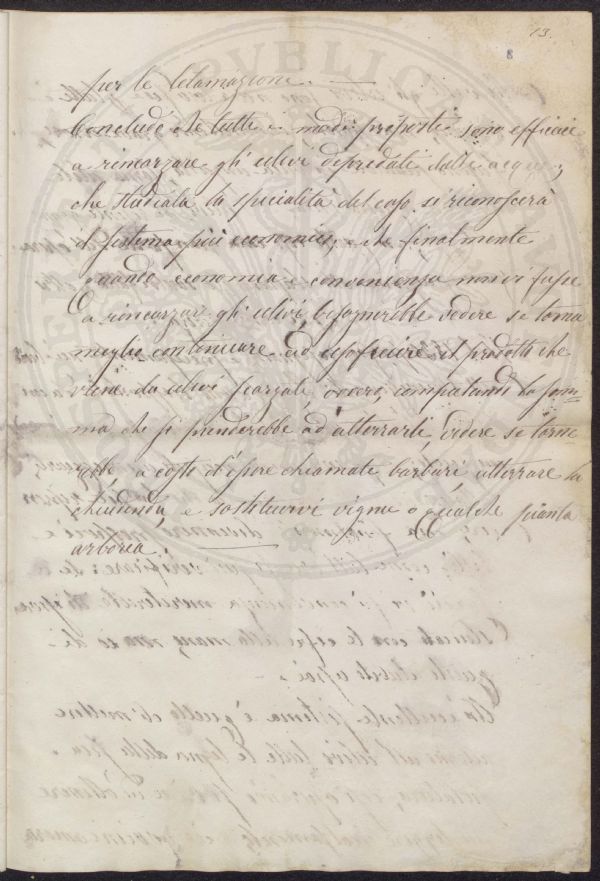 13.
8
per le letamazione.
Conclude che tutti i modi proposti sono efficaci
a rincarzare gli ulivi depredati dalle acque;
che studiata la specialità del caso si riconoscerà
il sistema più economico, e che finalmente
quando economia e convenienza non vi fosse
a rincarzar gli ulivi bisognerebbe vedere se torna
meglio continuare ad usufruire il prodotto che
viene da ulivi scarzati, ovvero, computando la som=
ma che si prenderebbe ad atterrarli, vedere se torne
rebbe a costo d'essere chiamati barbari atterrare la
chiudenda e sostituirvi vigne o qualche pianta
arborea.